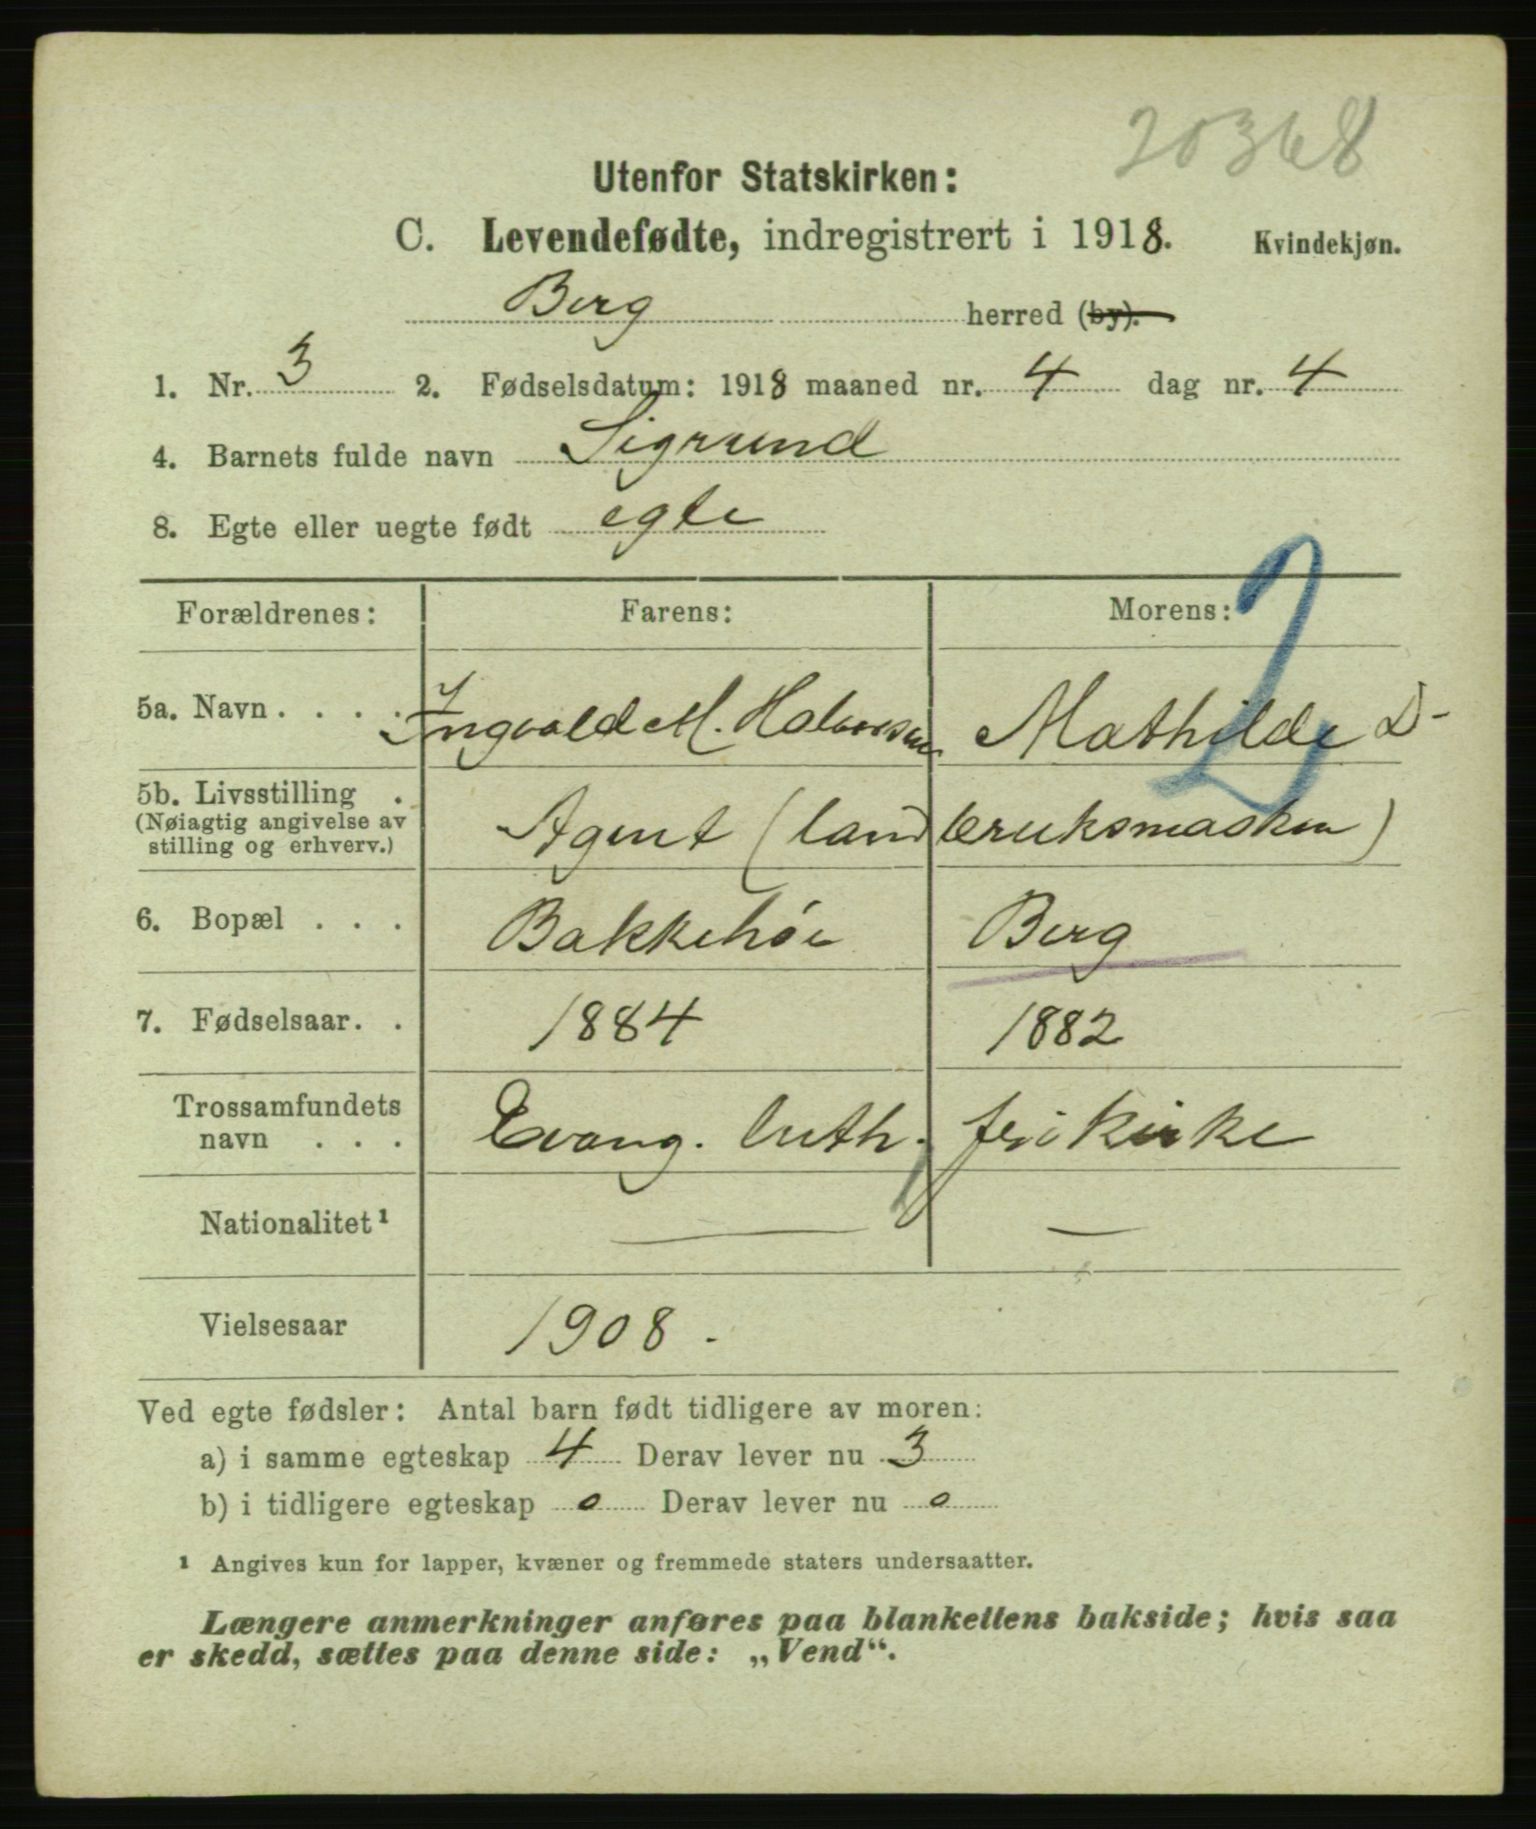 20368
Utenfor Statskirken:
C. Levendefødte, indregistrert i 1918. Kvindekjøn.
Berg herred (by).
1. Nr. 3 2. Fødselsdatum: 1918 maaned nr. 4 dag nr. 4
4. Barnets fulde navn Sigrund
8. Egte eller uegte født egte
Forældrenes: Farens: Morens:
2
5a. Navn . . . . Ingvald M. Halvorsen Mathilde D-
5b. Livsstilling .
(Nøiagtig angivelse av
stilling og erhverv.)
Agent (landbruksmaskin)
6. Bopæl . . . Bakkehöi Berg
7. Fødselsaar. . 1884 1882
Trossamfundets
navn . . .
Evang. luth. frikirke
Nationalitet¹ — —
Vielsesaar 1908.
Ved egte fødsler: Antal barn født tidligere av moren:
a) i samme egteskap 4 Derav lever nu 3
b) i tidligere egteskap 0 Derav lever nu 0
¹ Angives kun for lapper, kvæner og fremmede staters undersaatter.
Længere anmerkninger anføres paa blankettens bakside; hvis saa
er skedd, sættes paa denne side: „Vend“.